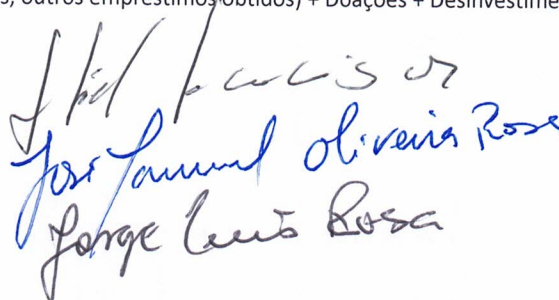 s, outros empréstimos obtidos) + Doações + Desinvestime
José Manuel Oliveira Rosa
Jorge Luis Rosa